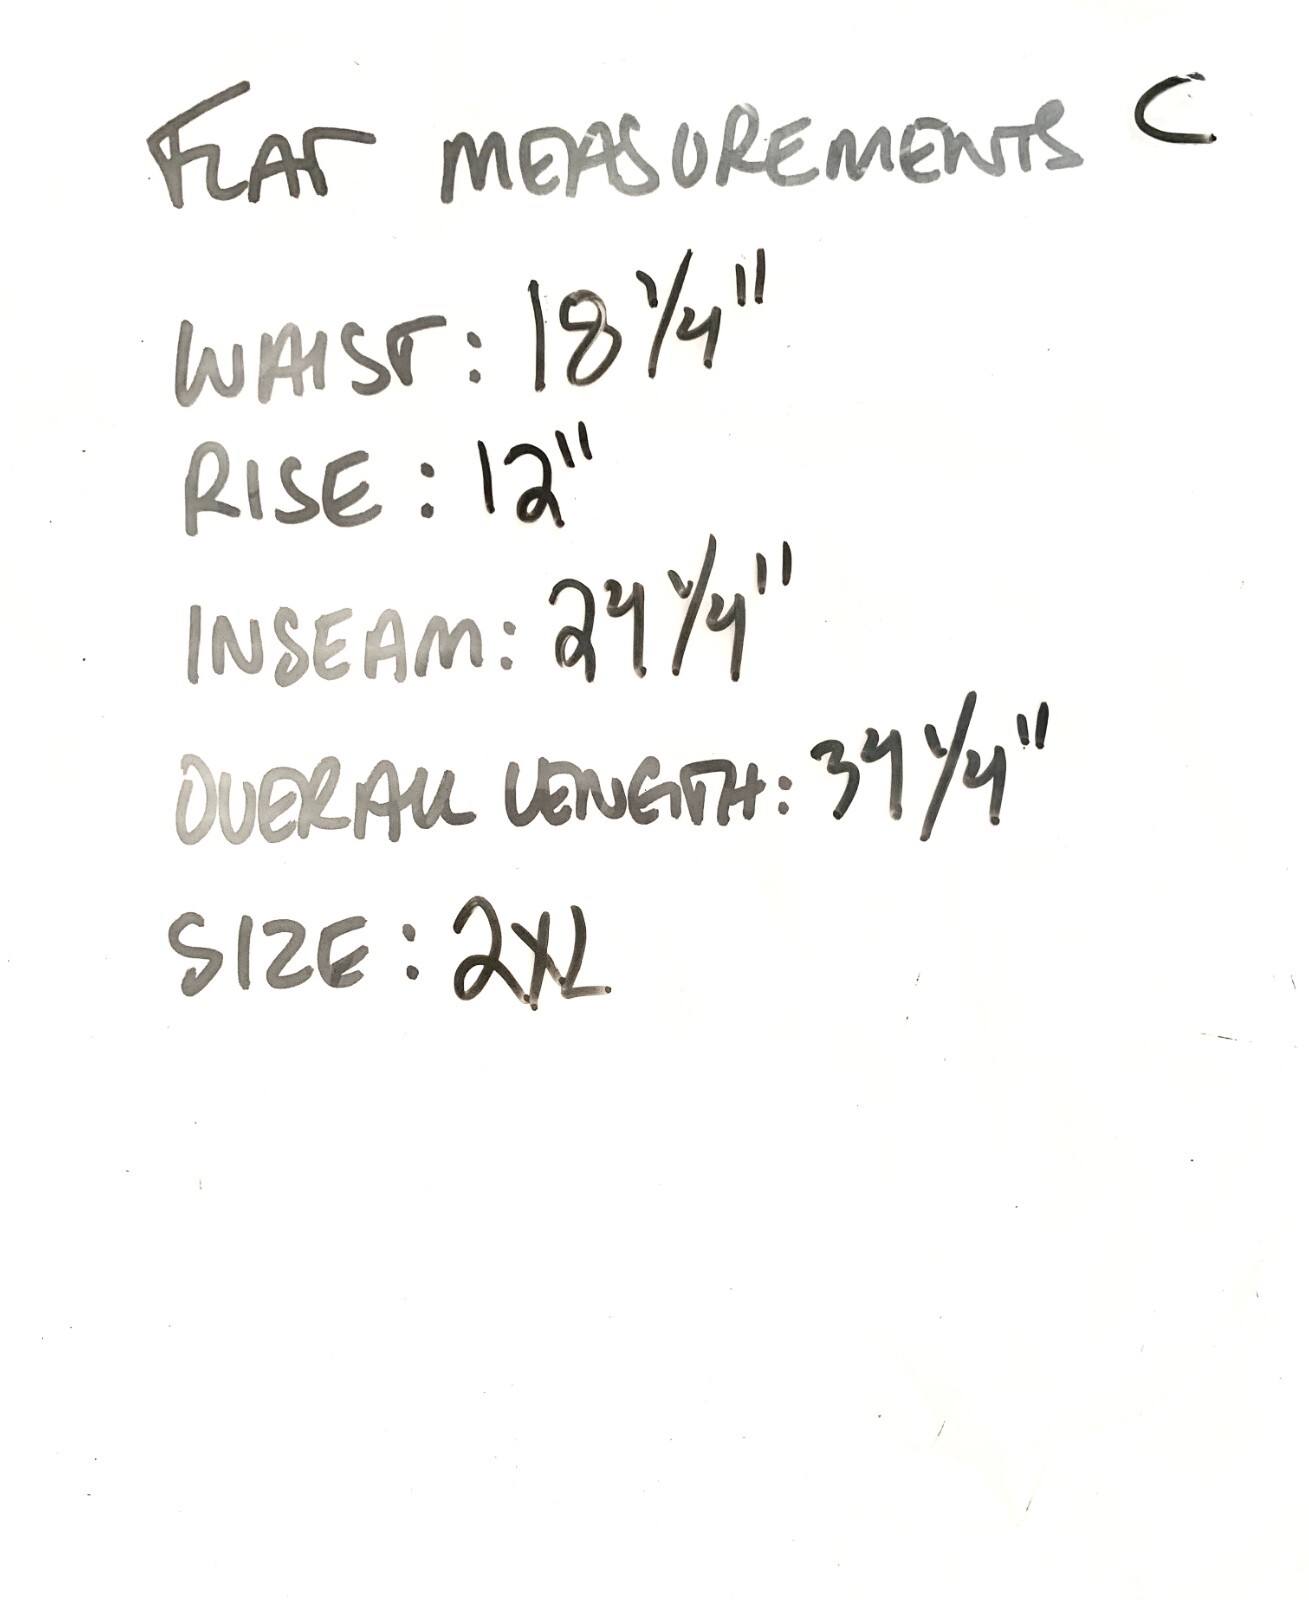 FLAT MEASUREMENTS C
WAIST: 18 1/4"
RISE: 12"
INSEAM: 24 1/4"
OVERALL LENGTH: 34 1/4"
SIZE: 2XL